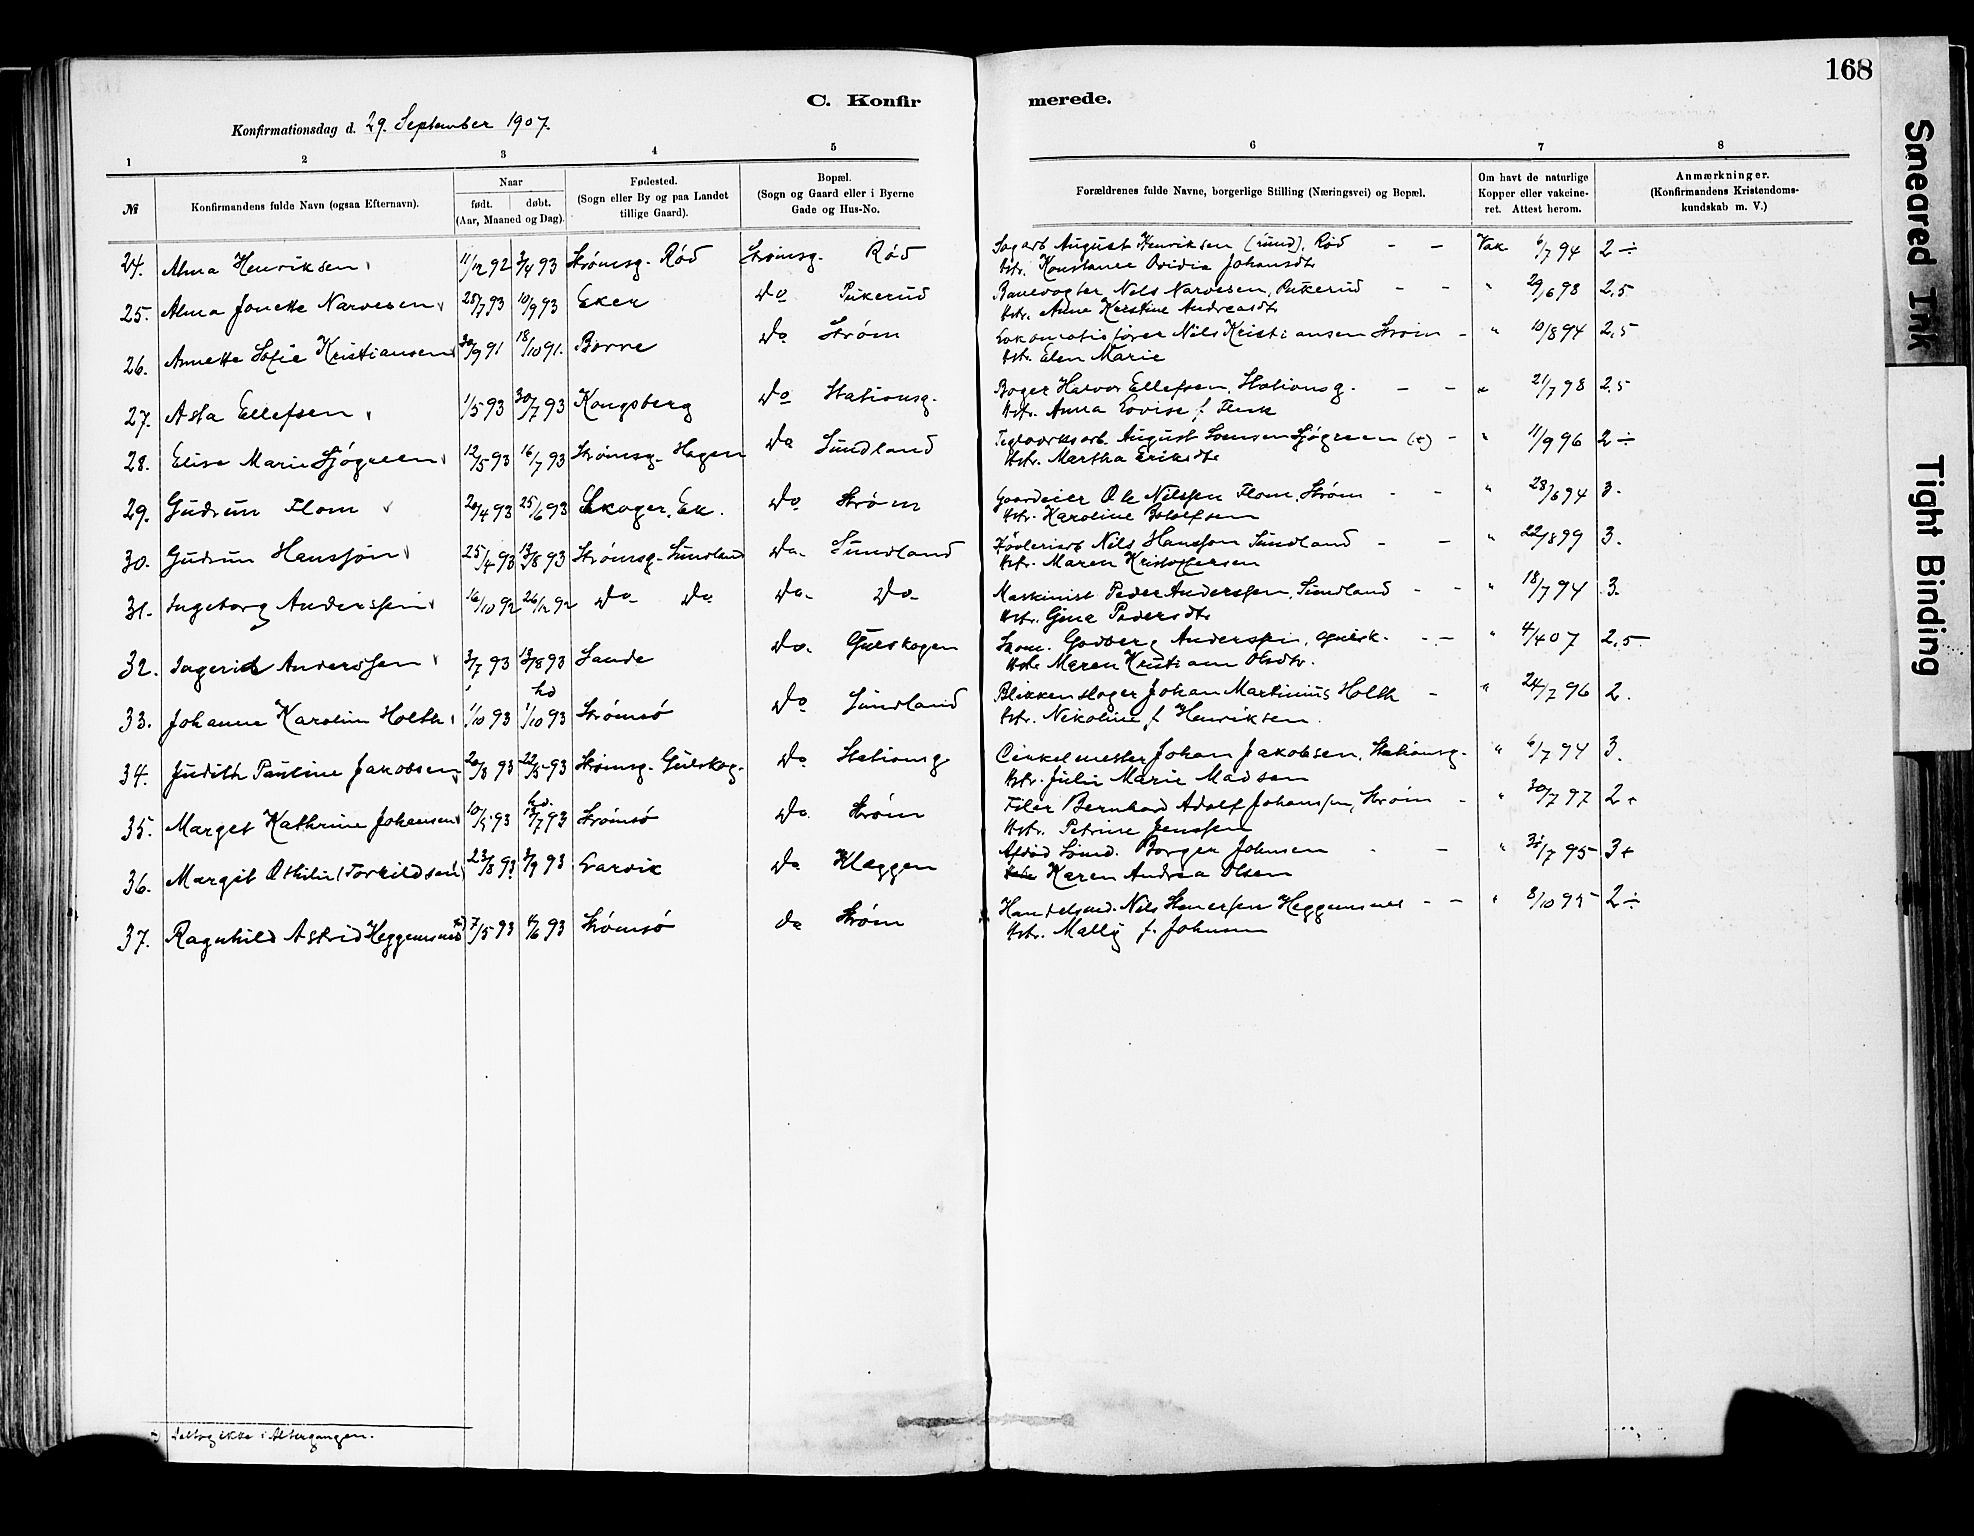 168
C. Konfir merede.
Konfirmationsdag d. 29. September 1907.
1 2 3 4 5 6 7 8
№ Konfirmandens fulde Navn (ogsaa Efternavn). Naar født. døbt. (Aar, Maaned og Dag). Fødested. (Sogn eller By og paa Landet tillige Gaard). Bopæl. (Sogn og Gaard eller i Byerne Gade og Hus-No. Forældrenes fulde Navne, borgerlige Stilling (Næringsvei) og Bopæl. Om havt de naturlige Kopper eller vakcineret. Attest herom. Anmærkninger. (Konfirmandens Kristendomskundskab m. V.)
24. Alma Henriksen 11/12 92 3/4 93 Strømsg. Rød Strømsg. Rød Sagarb August Henriksen (Lund), Rød - - Vak 6/7 94 2 ÷
Hstr. Konstance Ovidia Johansdtr
25. Alma Jonette Narvesen 28/7 93 10/9 93 Eker Do Pukerud Banevogter Nils Narvesen, Pukerud - - " 29/6 98 2,5
Hstr. Anne Kirstine Andreasdtr
26. Annette Sofie Kristiansen 30/9 91 18/10 91. Borre Do Strøm Lokomotivfører Nils Kristiansen Strøm - " 10/8 94 2,5
Hstr. Elen Marie
27. Asta Ellefsen 1/5 93 30/7 93 Kongsberg Do Stationsg. Bager Halvor Ellefsen, Stationsg. - - " 21/7 98 2,5
Hstr. Anna Lovise f.
28. Elise Marie Sjøgreen 12/5 93 16/7 93 Strømsg. Hagen Do Sundland Teglværksarb. August Svensen Sjøgreen - " 11/9 96 2 ÷
Hstr. Martha Eriksdtr
29. Gudrun Flom 20/4 93 25/6 93 Skoger, Ek. Do Strøm Gaardeier Ole Nilssen Flom, Strøm - - " 28/6 94 3.
Hstr. Karoline
30. Gudrun Hanssen 25/4 93 13/8 93 Strømsg. Sundland Do. Sundland Nils Hansson Sundland - - " 22/8 99 3.
Hstr. Maren Kristoffersen
31. Ingeborg Anderssen 16/10 92 26/12 92 Do Do Do. Do. Maskinist Peder Anderssen, Sundland - - " 18/7 94 3.
Hstr. Gina Pedersdtr
32. Ingerid Anderssen 3/7 93 13/8 93 Sande Do. Gulskogen Skom. Godberg Anderssen, Gulsk. - - " 4/4 07 2,5
Hstr Maren Kristiane Olsdtr.
33. Johanne Karoline Holth 1/10 93 hd 1/10 93 Strømsø Do Sundland Blikkenslager Johan Martinius Holth - " 24/7 96 2.
Hstr. Nikoline f. Henriksen.
34. Judith Pauline Jakobsen 20/3 93 22/5 93 Strømsg. Gulskog. Do Stationsg Cirkelmester Johan Jakobsen, Stationsg. " 6/7 94 3.
Hstr. Julie Marie Madsen
35. Margit Kathrine Johansen 10/5 93 hd. 13/7 93 Strømsø Do. Strøm Filer Bernhard Adolf Johanssen, Strøm - " 30/7 97 2 +
Hstr. Petrine Jenssen
36. Margit Othilie (Torkildsen) 23/8 93 3/9 93 Larvik Do Kleggen Afdød Sømd. Borger Johnsen - - " 31/7 95 3 +
Karen Andrea Olsen
37. Ragnhild Astrid Heggemsnes 7/5 93 4/6 93 Strømsø do Strøm Handelsmd. Nils Stenersen Heggemsnes - - " 8/10 95 2 ÷
Hstr. Mally f. Johnsen
Deltog ikke i Altergangen.
Smeared Ink
Tight Binding